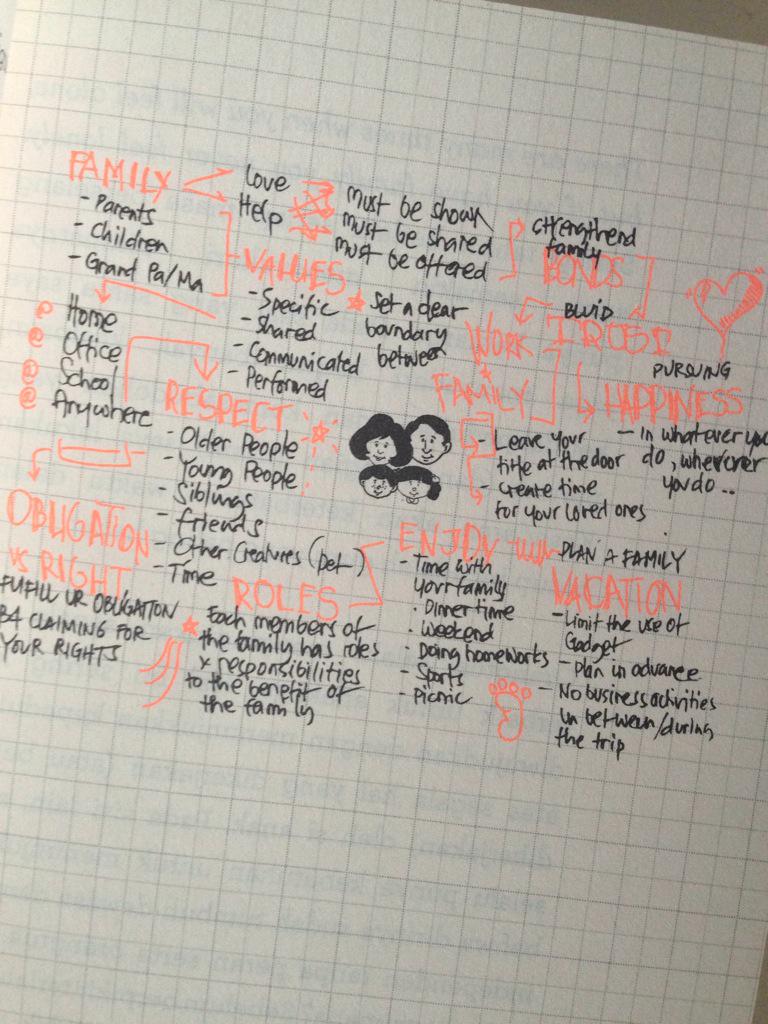 FAMILY
- Parents
- Children
- Grand Pa/Ma
Love
Help
must be shown
must be shared
must be offered
strengthend
family
BONDS
BUILD
TRUST
VALUES
- Specific
- Shared
- Communicated
- Performed
Set a clear
boundary
between
WORK
FAMILY
- Leave your
title at the door
- create time
for your loved ones
PURSUING
HAPPINESS
- in whatever you
do, wherever
you do..
Home
Office
School
Anywhere
RESPECT
- Older People
- Young People
- Siblings
- friends
- Other Creatures (pet)
- Time
OBLIGATION
vs RIGHT
FULFILL UR OBLIGATION
B4 CLAIMING FOR
YOUR RIGHTS
ROLES
Each members of
the family has roles
& responsibilities
to the benefit of
the family
ENJOY
- Time with
your family
· Dinner time
· Weekend
· Doing homeworks
- Sports
- Picnic
PLAN A FAMILY
VACATION
- Limit the use of
Gadget
- Plan in advance
- No business activities
in between/during
the trip